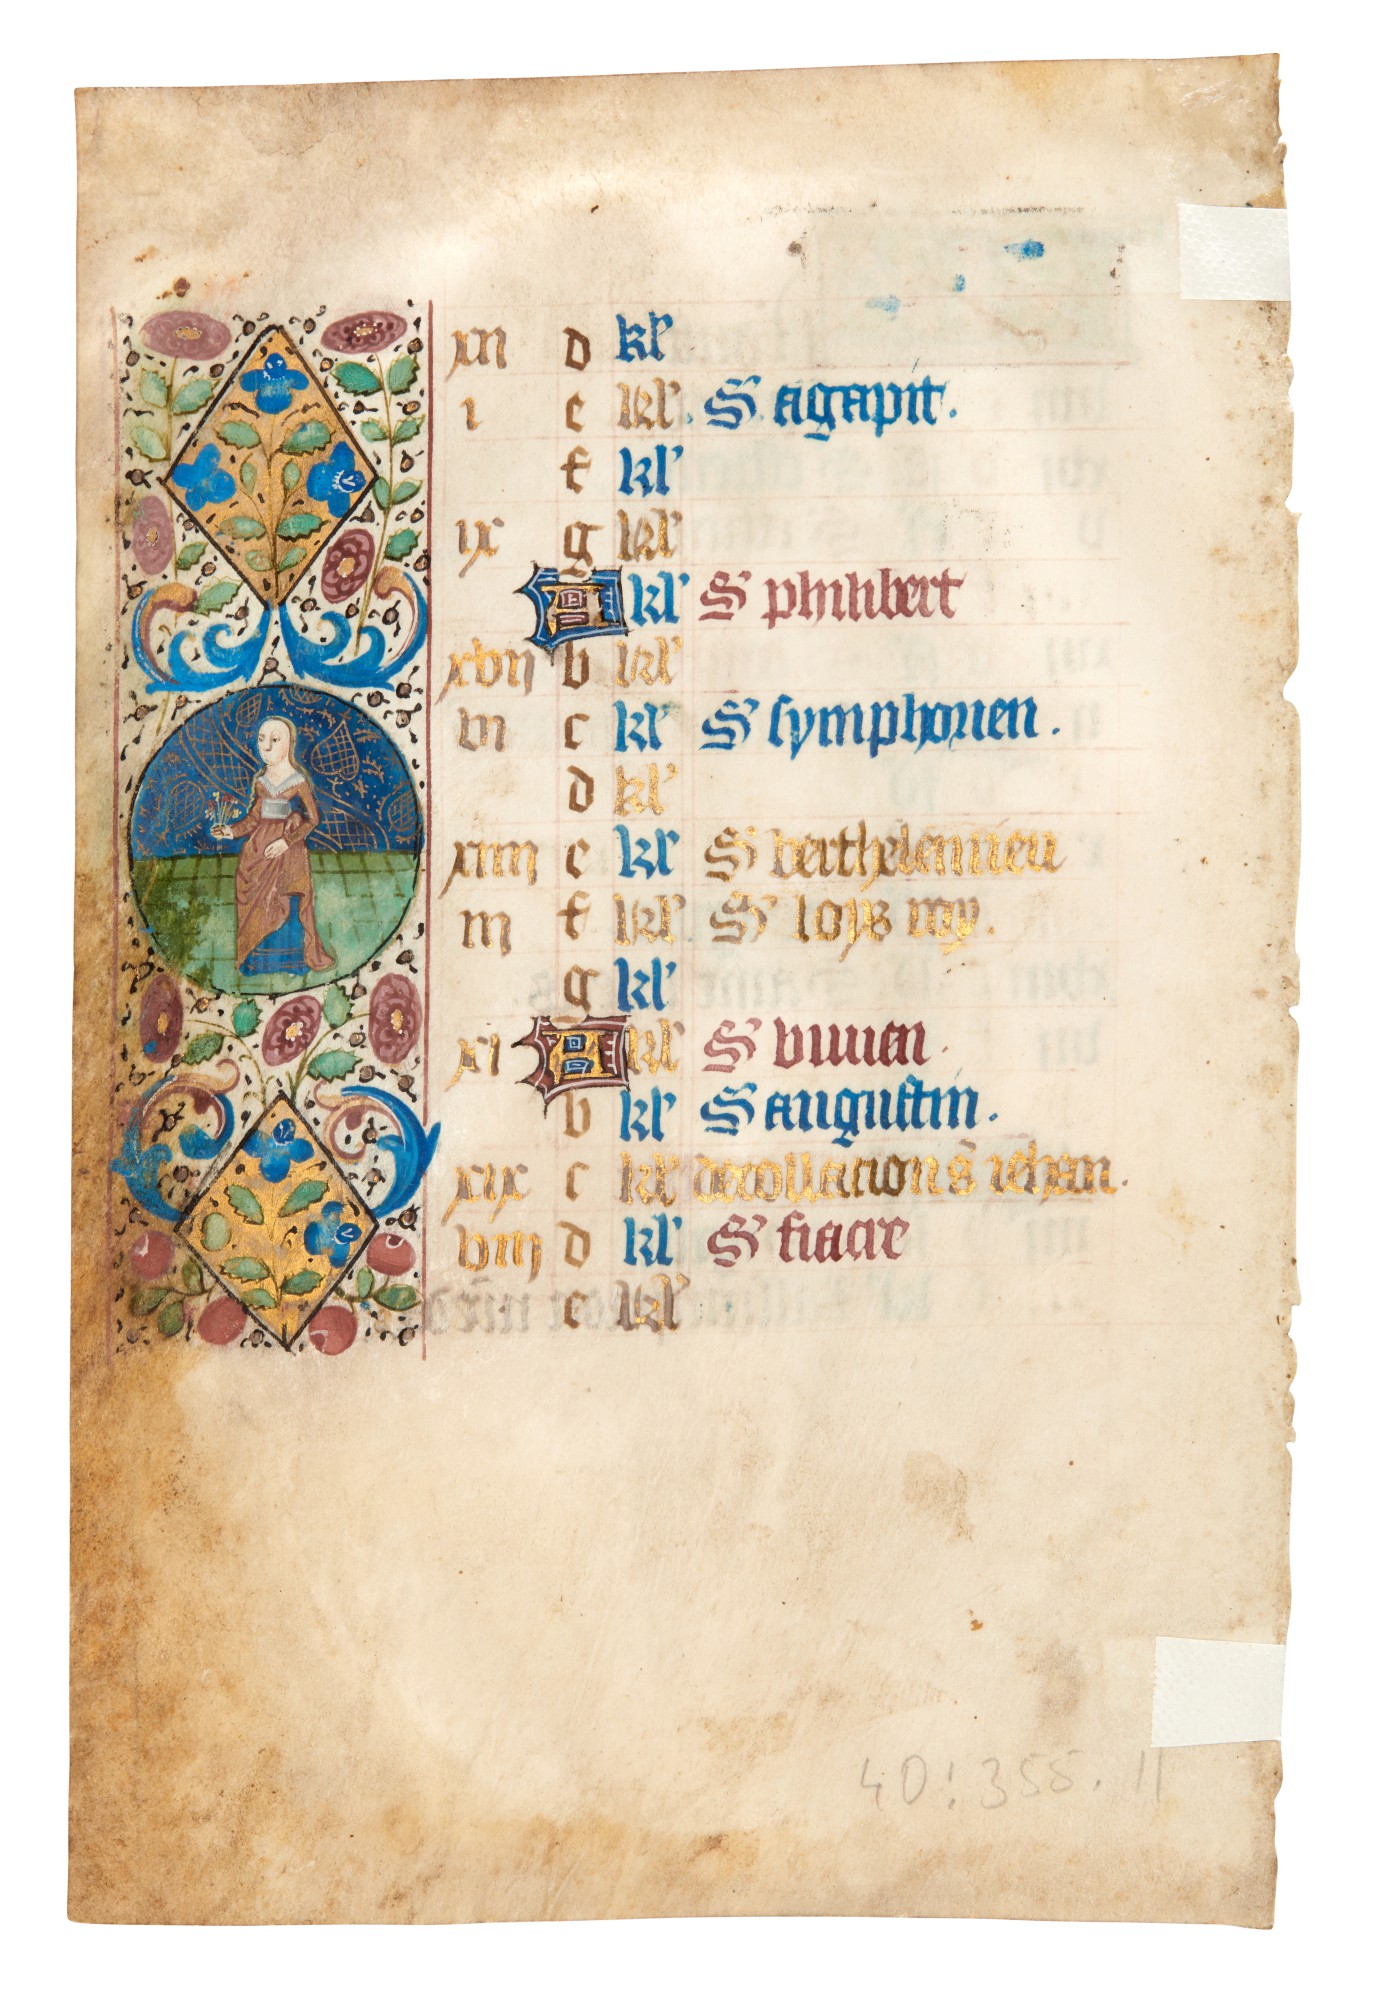 xii d kl'
i e kl'. S' agapit.
f kl'
ix g kl'
A kl' S' philibert
xvii b kl'
vi c kl' S' symphorien.
d kl'
xiiii e kl' S' berthelemieu
iii f kl'. S' loys roy.
g kl'
xi A kl' S' vivien.
b kl' S' augustin.
xix c kl' decollacion s' iehan.
viii d kl' S' fiacre
e kl'
40:355.11